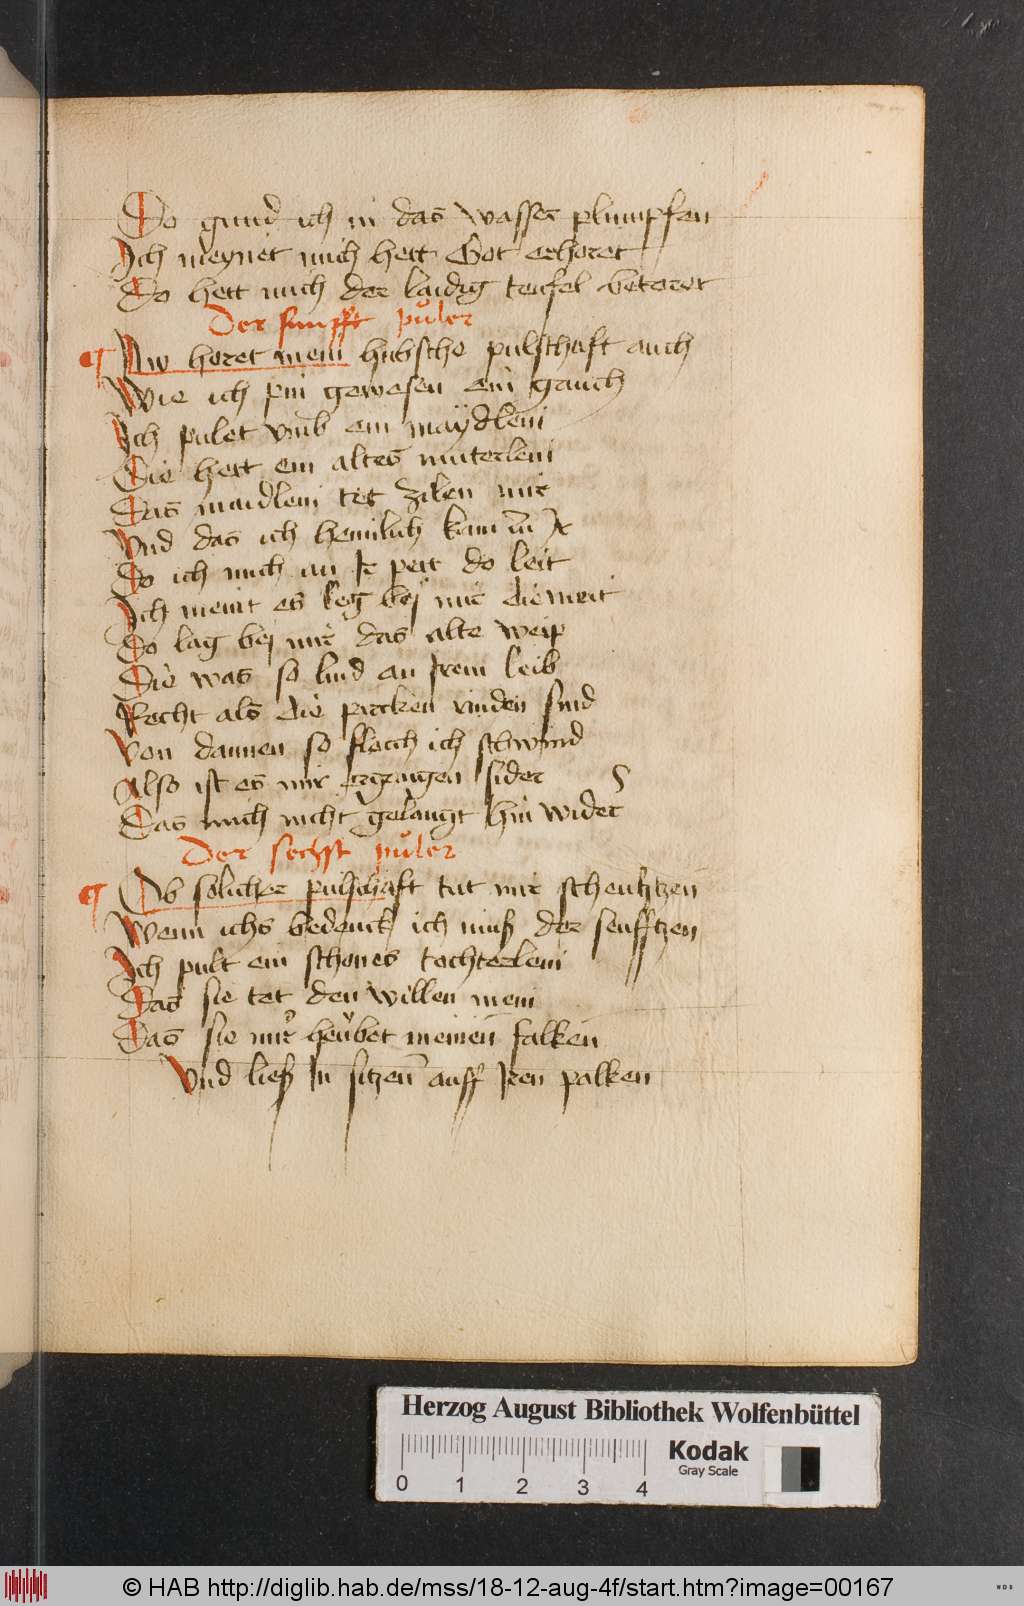 Do gund ich in das wasser plumpfen
Ich meynet mich hett Got erhoret
Do hett mich der laidig teufel betoret
Der funfft půler
Nw horet mein hubsche pulschaft auch
Wie ich pin gewesen ein gauch
Ich pulet vmb ein maÿdlein
Die hett ein altes muterlein
Das maidlein tet zilen mir
Vnd das ich heimlich kam zu Ir
Do ich mich an Ir pett do leit
Ich meint es leg beÿ mir die meit
Do lag bej mir das alte weip
Die was so lind an Irem leib
Recht als die pircken rinden sind
Von dannen so floch ich schwind
Also ist es mir ergangen sider
Das mich nicht gelangt hin wider
Der sechst půler
Ob solicher pulschaft tut mir scheuhtzen
Wenn ichs bedenck ich muß der seufftzen
Ich pult ein schones tochterlein
Das sie tet den willen mein
Das sie mir heubet meinen falken
Vnd ließ In sitzen auff Iren palken
Herzog August Bibliothek Wolfenbüttel
Kodak
Gray Scale
0 1 2 3 4
© HAB http://diglib.hab.de/mss/18-12-aug-4f/start.htm?image=00167